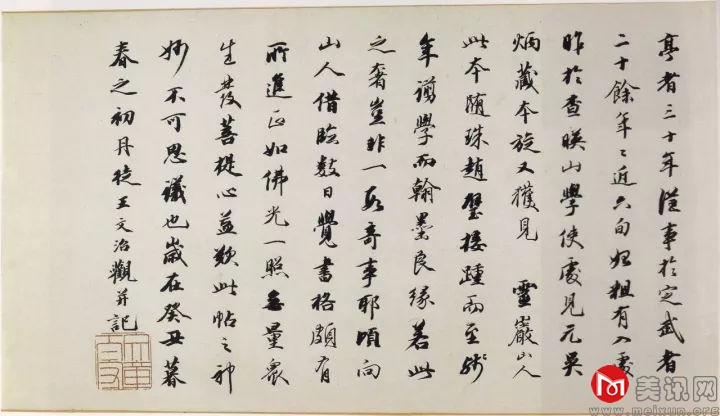 亭者三十年從事於定武者
二十餘年々近六旬始粗有入處
昨於查暎山學使處見元吳
炳藏本旋又獲見 靈巖山人
此本隨珠趙璧接踵而至
年謭學而翰墨良緣若此
之奢豈非一段奇事耶頃向
山人借臨數日覺書格頗有
所進正如佛光一照無量眾
生發菩提心益歎此帖之神
妙不可思議也歲在癸丑暮
春之初丹徒王文治觀并記
美讯网
www.meixun.org